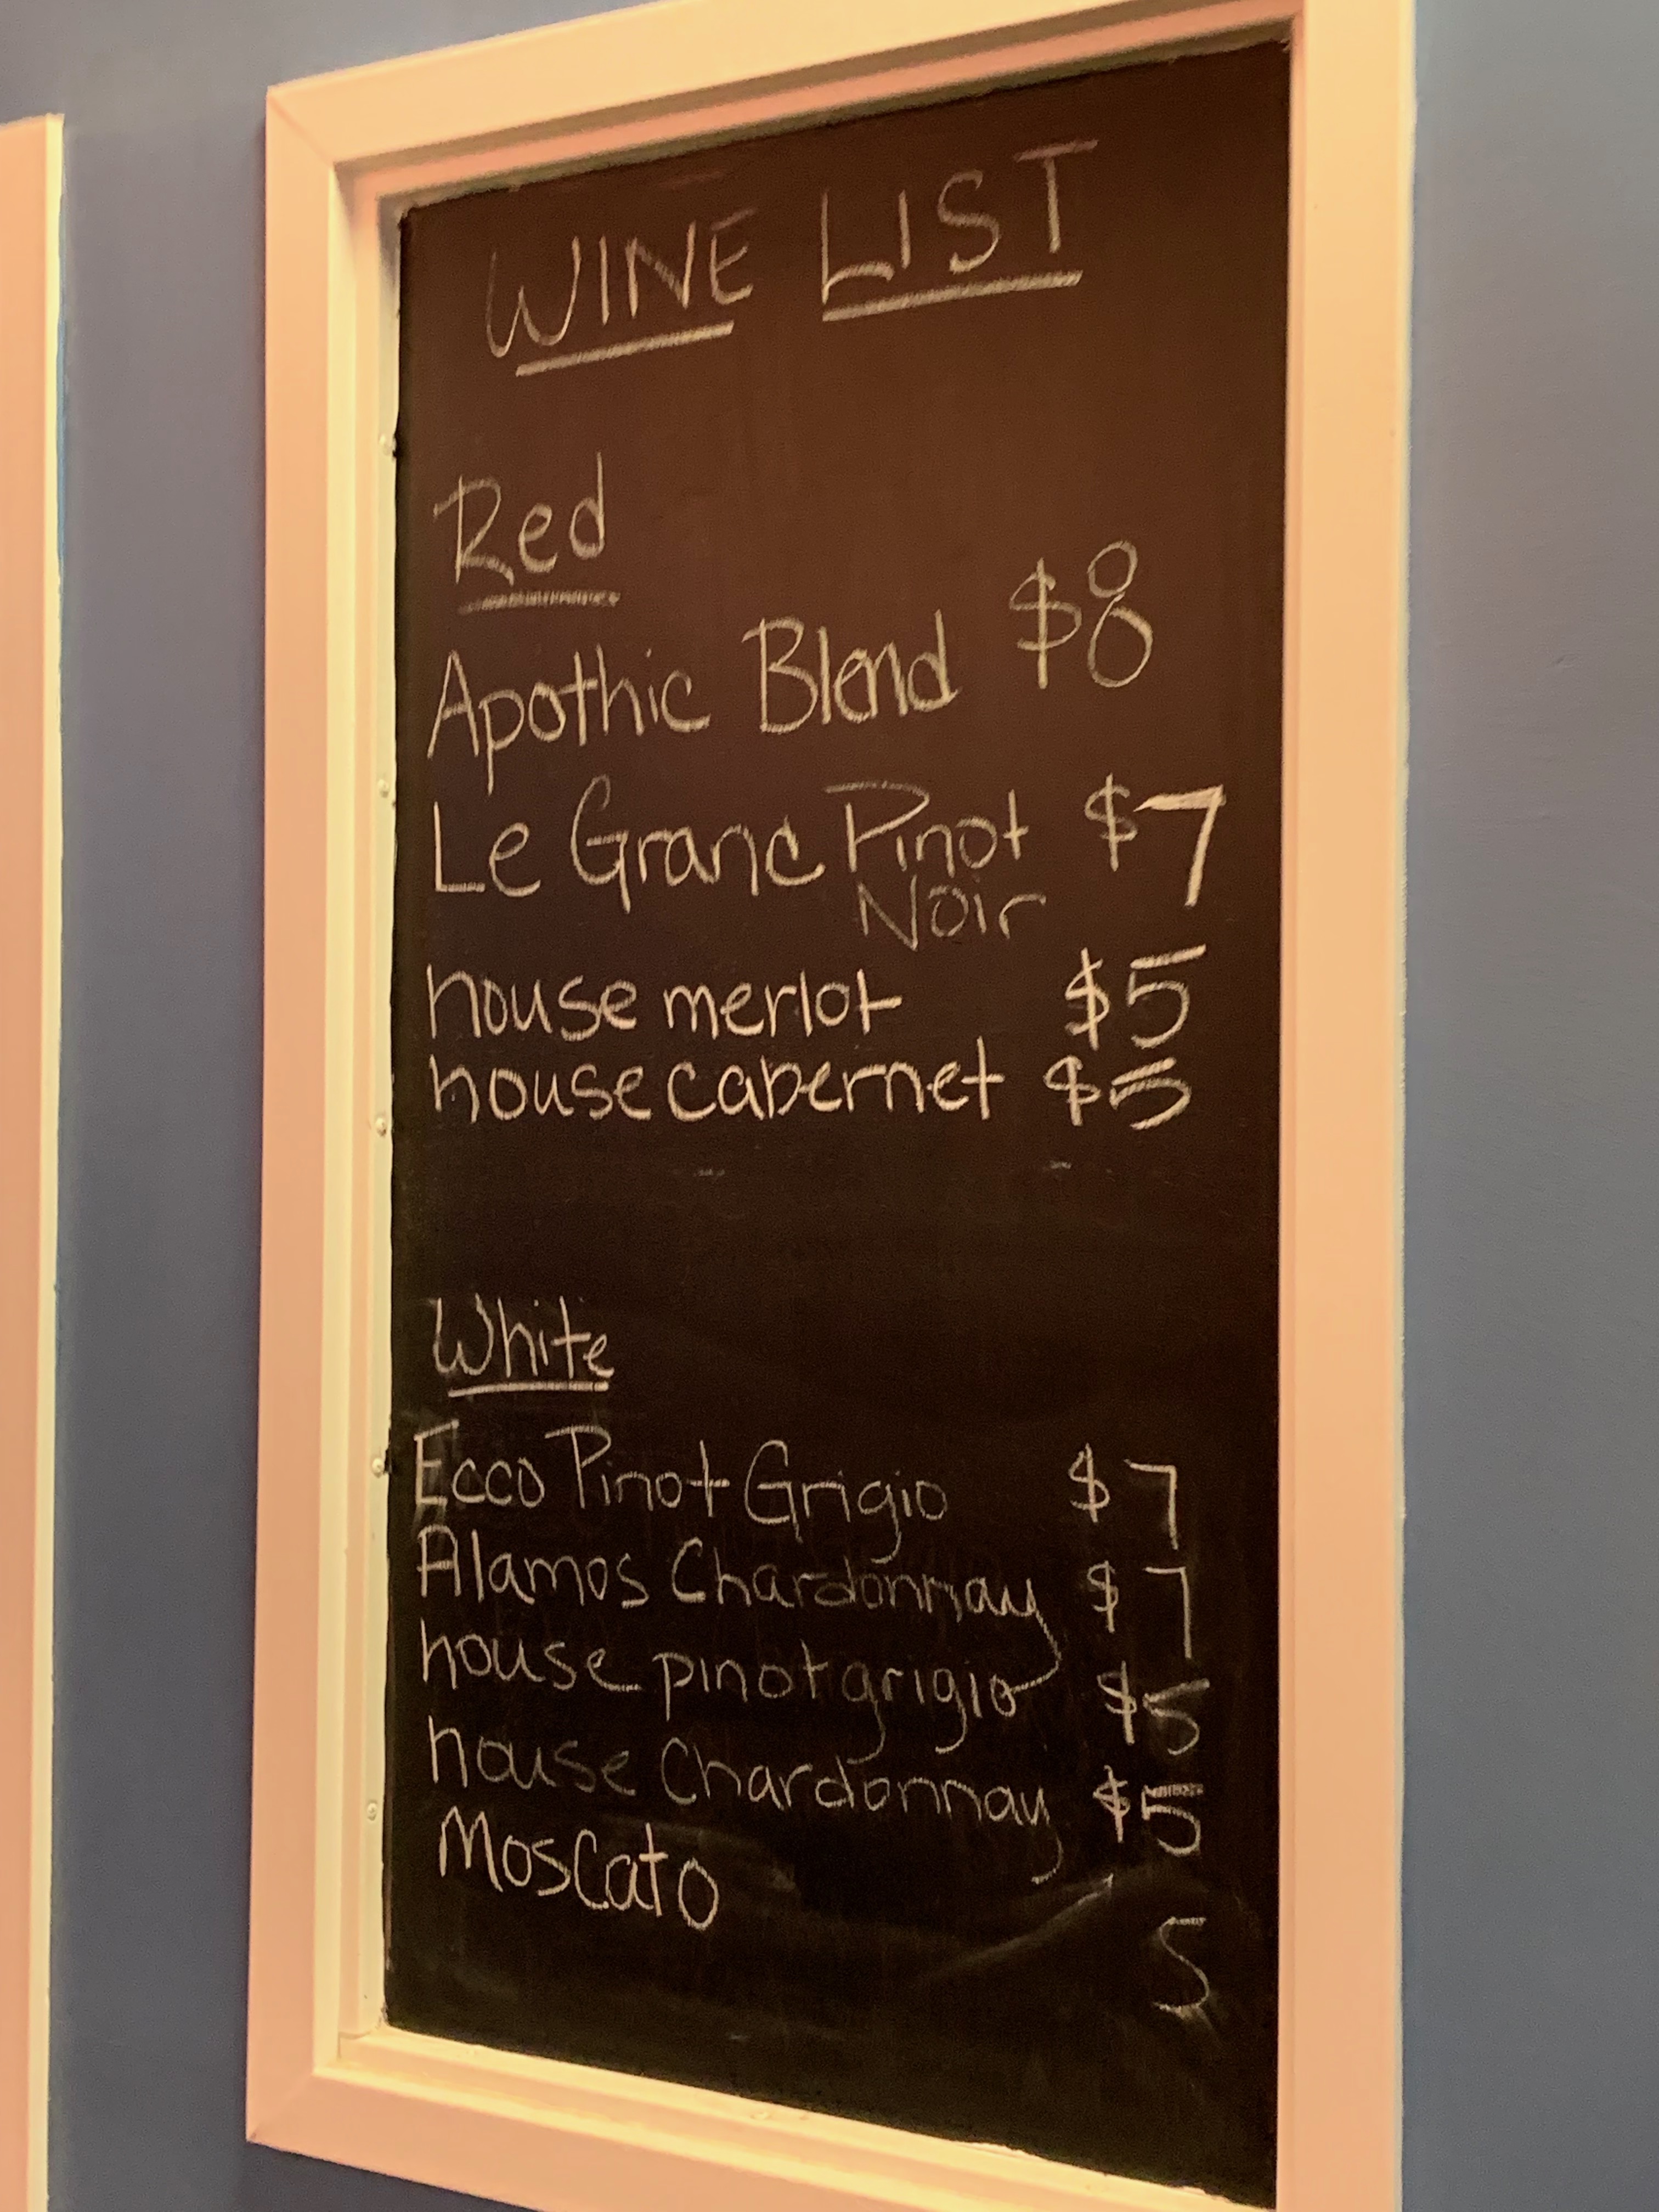 WINE LIST
Red
Apothic Blend $8
Le Granc Pinot $7
Noir
house merlot $5
house cabernet $5
White
Ecco Pinot Grigio $7
Alamos Chardonnay $7
house pinot grigio $5
house Chardonnay $5
Moscato 5